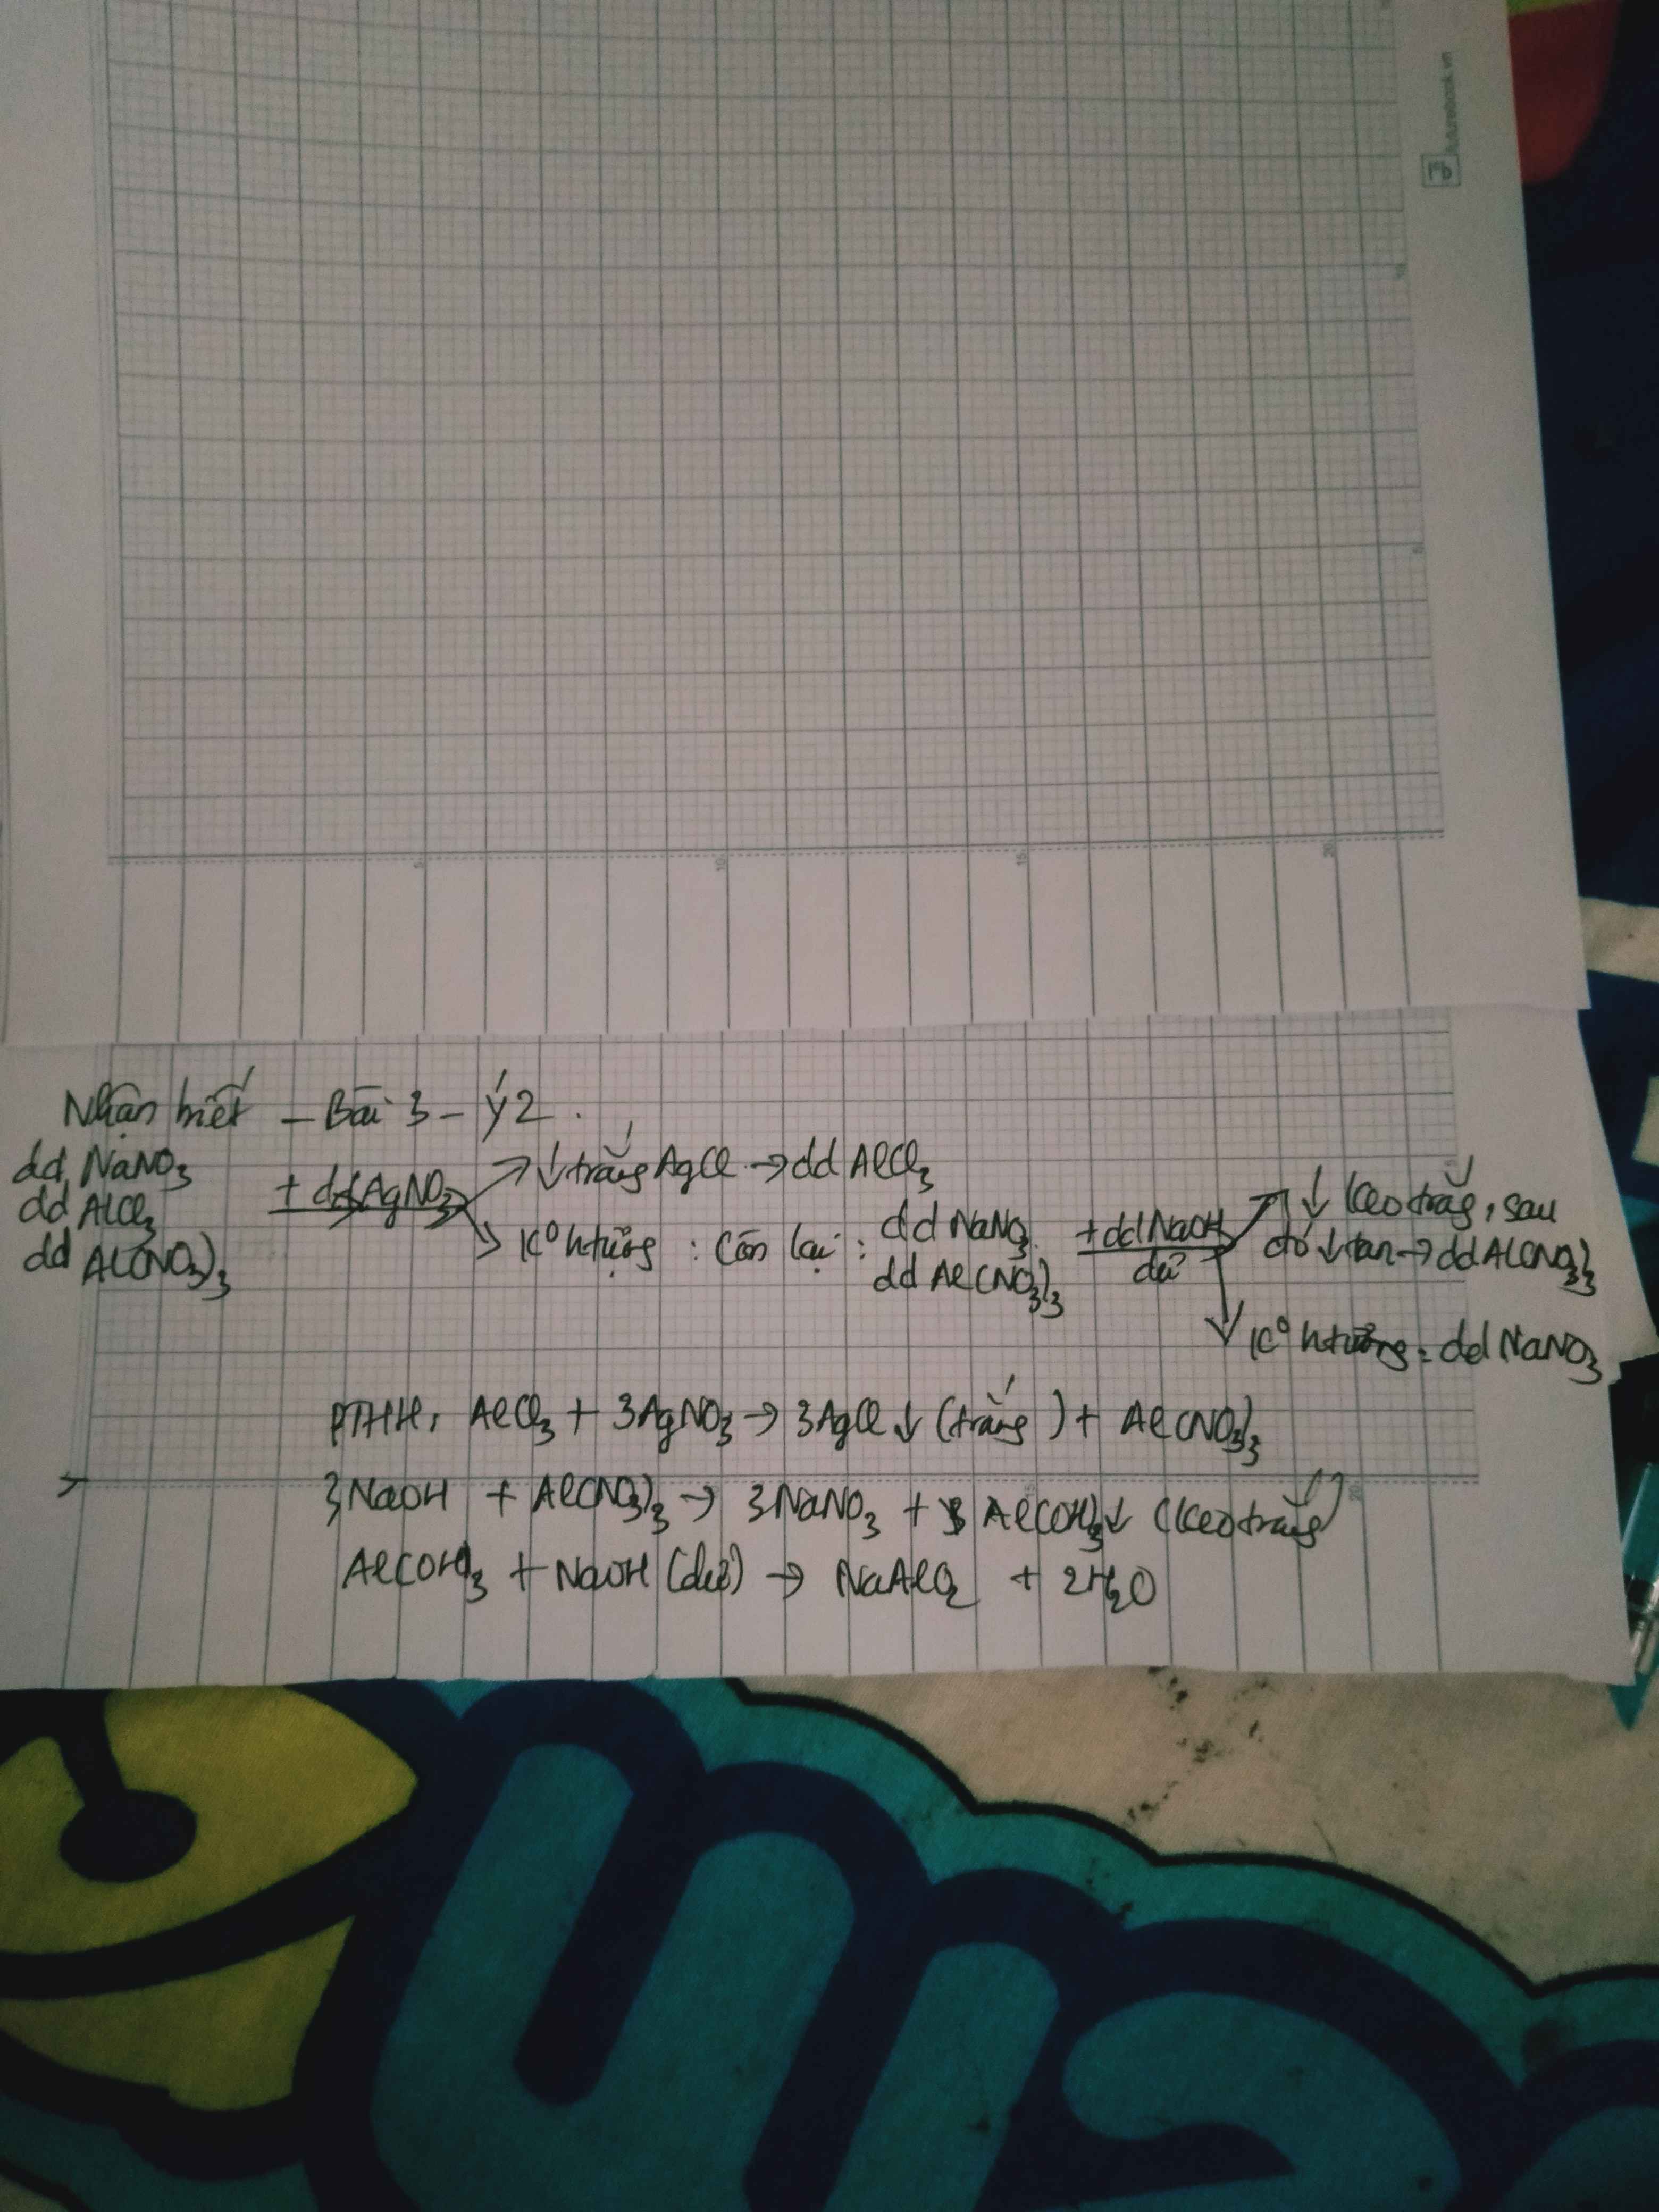 Nhận biết - Bài 3 - ý 2.
dd NaNO3
dd AlCl3
dd Al(NO3)3
+ dd AgNO3
↓ trắng AgCl → dd AlCl3
K⁰ htượng : Còn lại : dd NaNO3
dd Al(NO3)3
+ dd NaOH
dư
↓ keo trắng, sau
đó ↓ tan → dd Al(NO3)3
K⁰ htượng : dd NaNO3
PTHH: AlCl3 + 3AgNO3 → 3AgCl ↓ (trắng) + Al(NO3)3
3NaOH + Al(NO3)3 → 3NaNO3 + Al(OH)3 ↓ (keo trắng)
Al(OH)3 + NaOH (dư) → NaAlO2 + 2H2O
5
10
15
20
5
10
20